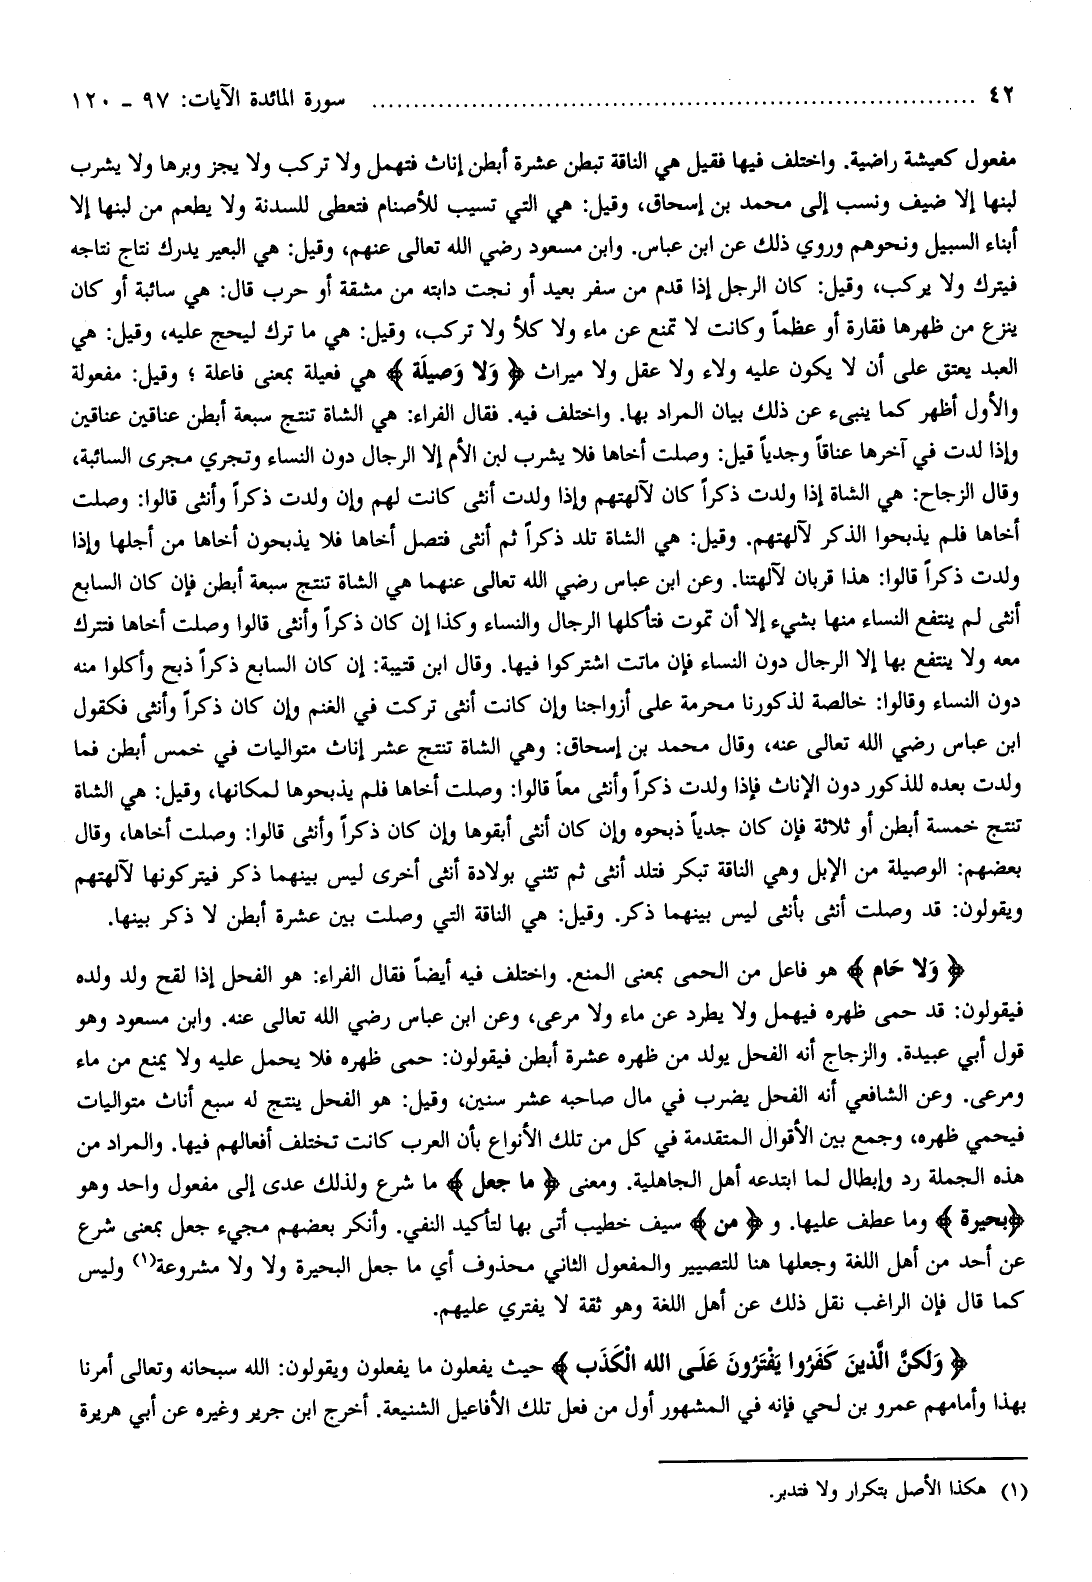 ٤٢ ........................................................................ سورة المائدة الآيات: ٩٧ – ١٢٠
مفعول كعيشة راضية. واختلف فيها فقيل هي الناقة تبطن عشرة أبطن إناث فتهمل ولا تركب ولا يجز وبرها ولا يشرب
لبنها إلا ضيف ونسب إلى محمد بن إسحاق، وقيل: هي التي تسيب للأصنام فتعطى للسدنة ولا يطعم من لبنها إلا
أبناء السبيل ونحوهم وروي ذلك عن ابن عباس. وابن مسعود رضي الله تعالى عنهم، وقيل: هي البعير يدرك نتاج نتاجه
فيترك ولا يركب، وقيل: كان الرجل إذا قدم من سفر بعيد أو نجت دابته من مشقة أو حرب قال: هي سائبة أو كان
ينزع من ظهرها فقارة أو عظماً وكانت لا تمنع عن ماء ولا كلأ ولا تركب، وقيل: هي ما ترك ليحج عليه، وقيل: هي
العبد يعتق على أن لا يكون عليه ولاء ولا عقل ولا ميراث ﴿ وَلا وَصيلَة ﴾ هي فعيلة بمعنى فاعلة ؛ وقيل: مفعولة
والأول أظهر كما ينبىء عن ذلك بيان المراد بها. واختلف فيه. فقال الفراء: هي الشاة تنتج سبعة أبطن عناقين عناقين
وإذا لدت في آخرها عناقاً وجدياً قيل: وصلت أخاها فلا يشرب لبن الأم إلا الرجال دون النساء وتجري مجرى السائبة،
وقال الزجاج: هي الشاة إذا ولدت ذكراً كان لآلهتهم وإذا ولدت أنثى كانت لهم وإن ولدت ذكراً وأنثى قالوا: وصلت
أخاها فلم يذبحوا الذكر لآلهتهم. وقيل: هي الشاة تلد ذكراً ثم أنثى فتصل أخاها فلا يذبحون أخاها من أجلها وإذا
ولدت ذكراً قالوا: هذا قربان لآلهتنا. وعن ابن عباس رضي الله تعالى عنهما هي الشاة تنتج سبعة أبطن فإن كان السابع
أنثى لم ينتفع النساء منها بشيء إلا أن تموت فتأكلها الرجال والنساء وكذا إن كان ذكراً وأنثى قالوا وصلت أخاها فتترك
معه ولا ينتفع بها إلا الرجال دون النساء فإن ماتت اشتركوا فيها. وقال ابن قتيبة: إن كان السابع ذكراً ذبح وأكلوا منه
دون النساء وقالوا: خالصة لذكورنا محرمة على أزواجنا وإن كانت أنثى تركت في الغنم وإن كان ذكراً وأنثى فكقول
ابن عباس رضي الله تعالى عنه، وقال محمد بن إسحاق: وهي الشاة تنتج عشر إناث متواليات في خمس أبطن فما
ولدت بعده للذكور دون الإناث فإذا ولدت ذكراً وأنثى معاً قالوا: وصلت أخاها فلم يذبحوها لمكانها، وقيل: هي الشاة
تنتج خمسة أبطن أو ثلاثة فإن كان جدياً ذبحوه وإن كان أنثى أبقوها وإن كان ذكراً وأنثى قالوا: وصلت أخاها، وقال
بعضهم: الوصيلة من الإبل وهي الناقة تبكر فتلد أنثى ثم تثني بولادة أنثى أخرى ليس بينهما ذكر فيتركونها لآلهتهم
ويقولون: قد وصلت أنثى بأنثى ليس بينهما ذكر. وقيل: هي الناقة التي وصلت بين عشرة أبطن لا ذكر بينها.
﴿ وَلا حَام ﴾ هو فاعل من الحمى بمعنى المنع. واختلف فيه أيضاً فقال الفراء: هو الفحل إذا لقح ولد ولده
فيقولون: قد حمى ظهره فيهمل ولا يطرد عن ماء ولا مرعى، وعن ابن عباس رضي الله تعالى عنه. وابن مسعود وهو
قول أبي عبيدة. والزجاج أنه الفحل يولد من ظهره عشرة أبطن فيقولون: حمى ظهره فلا يحمل عليه ولا يمنع من ماء
ومرعى. وعن الشافعي أنه الفحل يضرب في مال صاحبه عشر سنين، وقيل: هو الفحل ينتج له سبع أناث متواليات
فيحمي ظهره، وجمع بين الأقوال المتقدمة في كل من تلك الأنواع بأن العرب كانت تختلف أفعالهم فيها. والمراد من
هذه الجملة رد وإبطال لما ابتدعه أهل الجاهلية. ومعنى ﴿ ما جعل ﴾ ما شرع ولذلك عدى إلى مفعول واحد وهو
﴿بحيرة ﴾ وما عطف عليها. و ﴿ من ﴾ سيف خطيب أتى بها لتأكيد النفي. وأنكر بعضهم مجيء جعل بمعنى شرع
عن أحد من أهل اللغة وجعلها هنا للتصيير والمفعول الثاني محذوف أي ما جعل البحيرة ولا ولا مشروعة(١) وليس
كما قال فإن الراغب نقل ذلك عن أهل اللغة وهو ثقة لا يفتري عليهم.
﴿ وَلَكنَّ الَّذينَ كَفَرُوا يَفْتَرُونَ عَلَى الله الْكَذَب ﴾ حيث يفعلون ما يفعلون ويقولون: الله سبحانه وتعالى أمرنا
بهذا وأمامهم عمرو بن لحي فإنه في المشهور أول من فعل تلك الأفاعيل الشنيعة. أخرج ابن جرير وغيره عن أبي هريرة
(١) هكذا الأصل بتكرار ولا فتدبر.